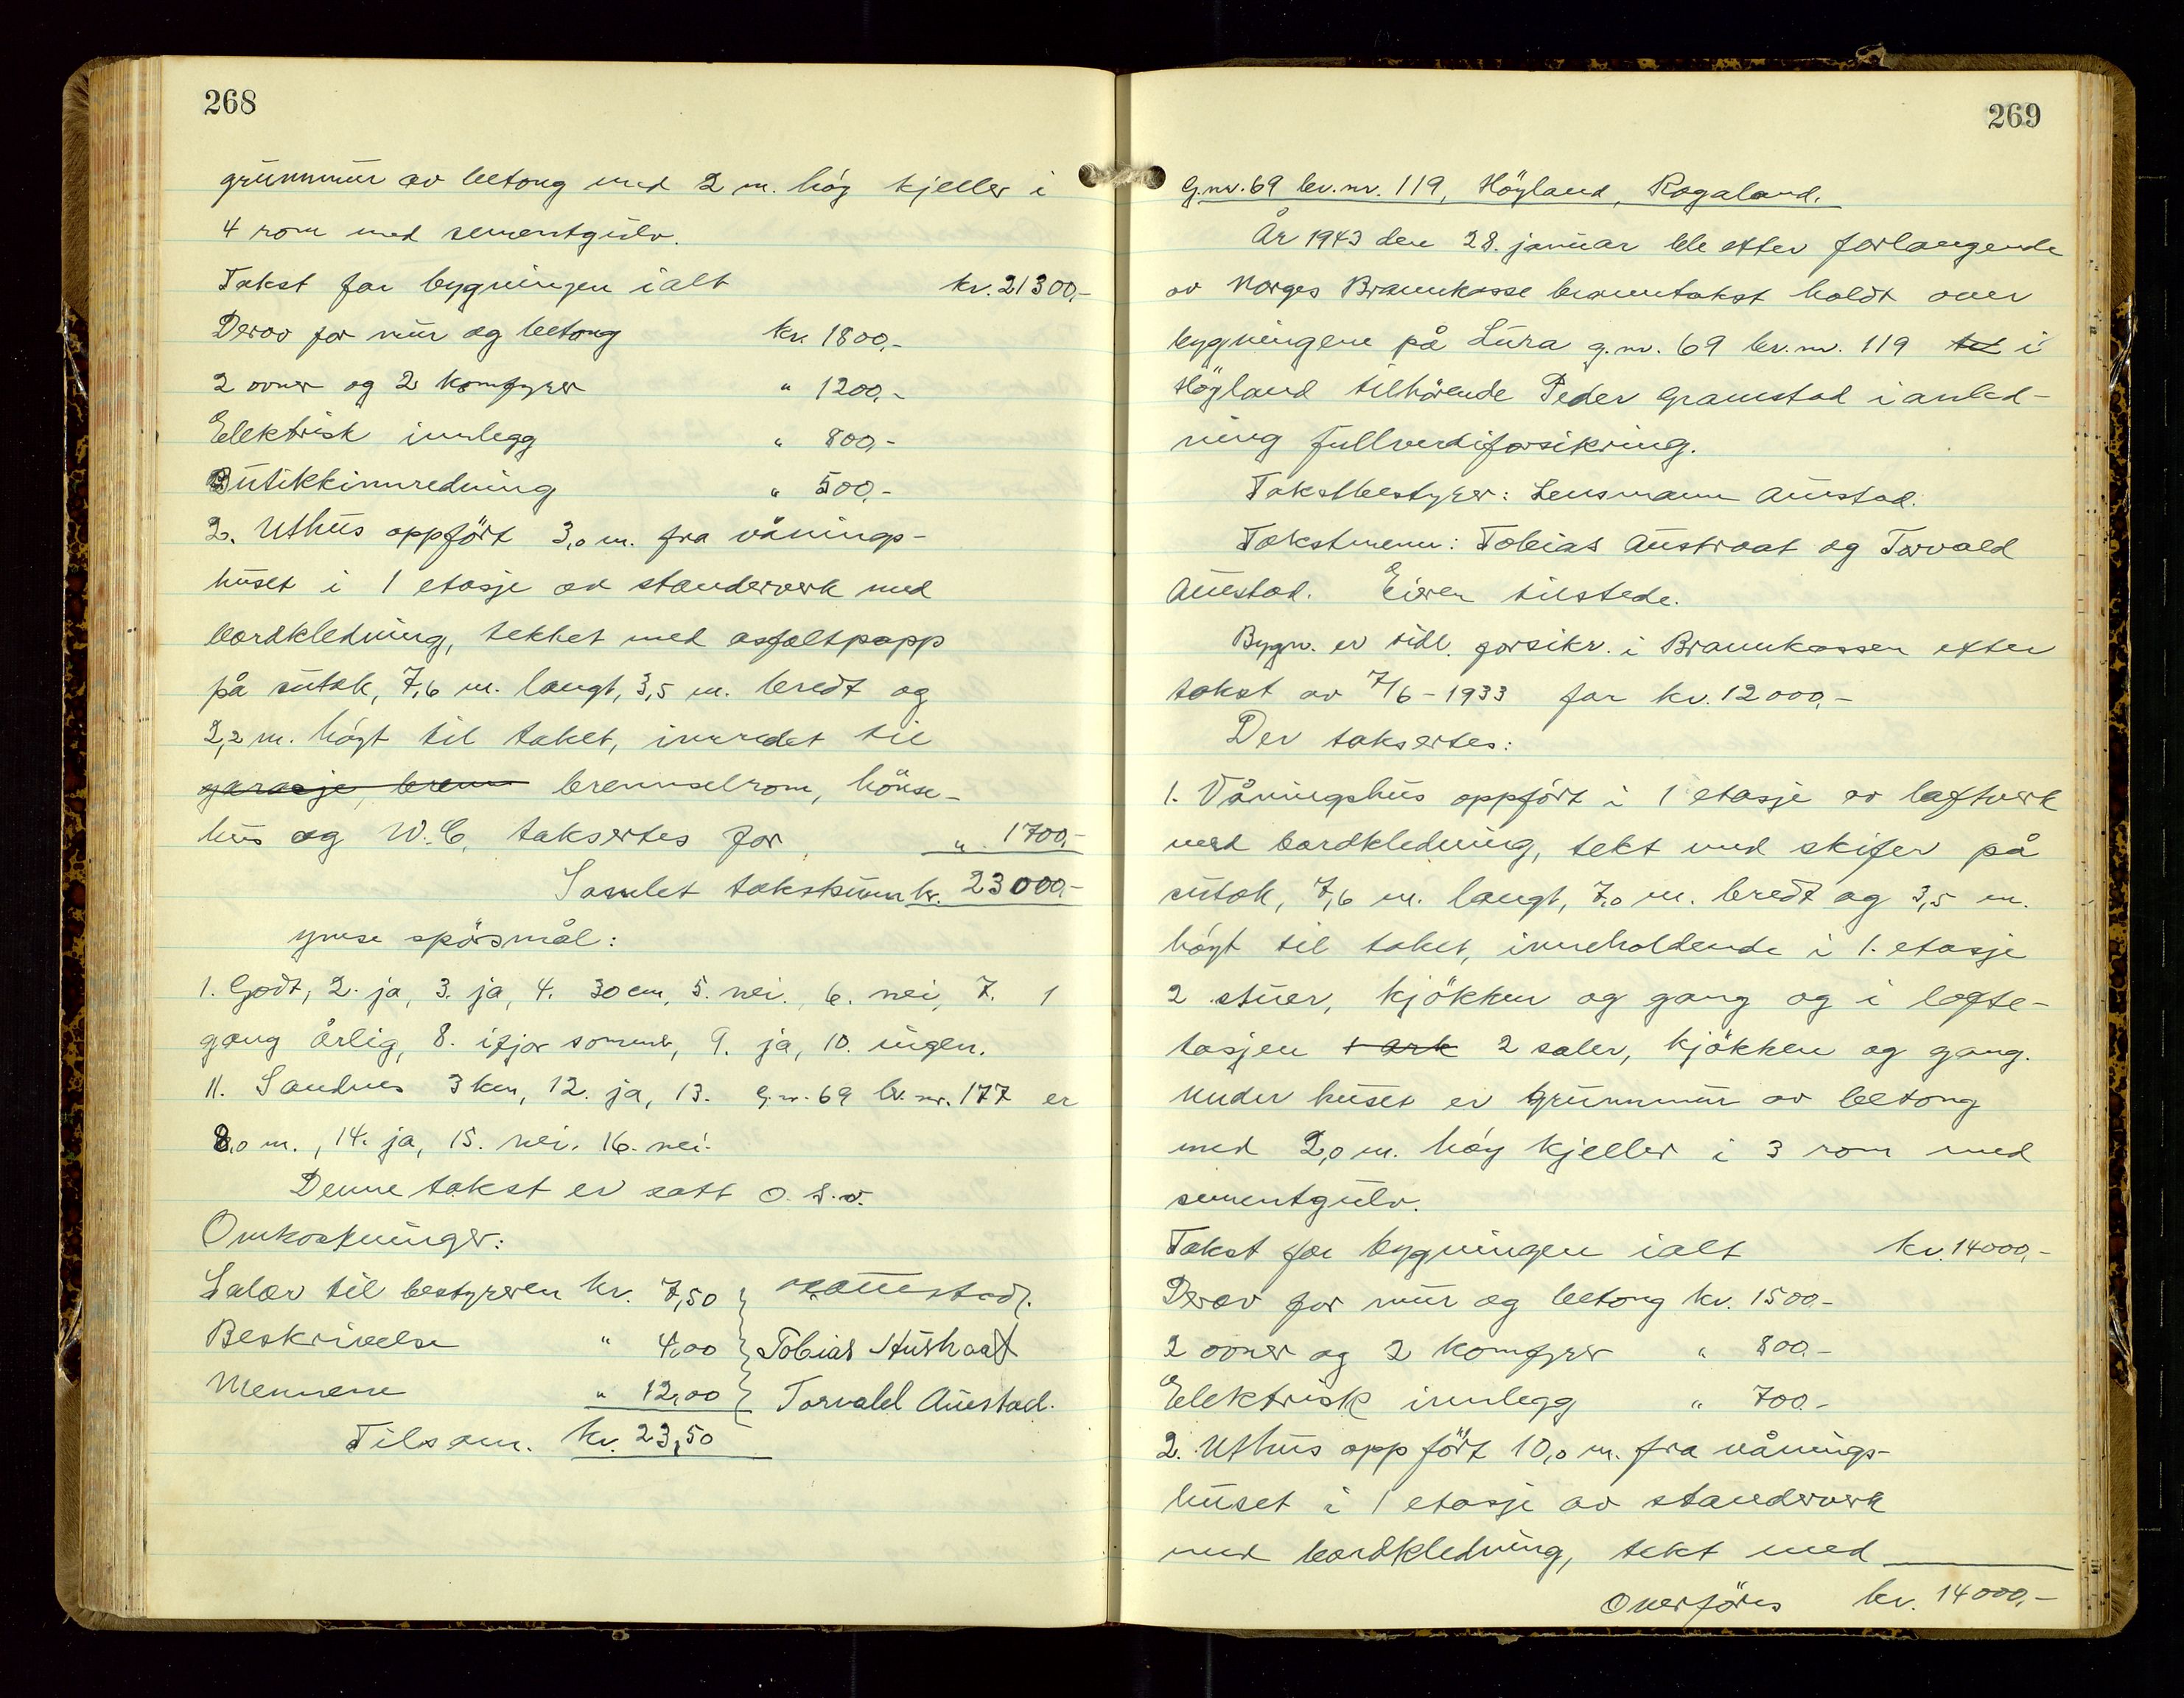 268
grunnmur av betong med 2 m. høg kjeller i
4 rom med sementgulv.
Takst for bygningen ialt kr. 21300,-
Derav for mur og betong kr. 1800,-
2 ovner og 2 komfyrer " 1200,-
Elektrisk innlegg " 800,-
Butikkinnredning " 500,-
2. Uthus oppfört 3,0 m. fra vånings-
huset i 1 etasje av standerverk med
bordkledning, tekket med asfaltpapp
på sutak, 7,6 m. langt, 3,5 m. bredt og
2,2 m. högt til taket, innredet til
garasje, brenn brennselrom, hönse-
hus og W.C. taksertes for " 1700,-
Samlet takstsum kr. 23000,-
ymse spörsmål:
1. Godt, 2. ja, 3. ja, 4. 30 cm, 5. nei., 6. nei, 7. 1
gang årlig, 8. ifjor sommer, 9. ja, 10. ingen.
11. Sandnes 3 km, 12. ja, 13. g.nr. 69 br.nr. 177 er
8,0 m., 14. ja, 15. nei. 16. nei.
Denne takst er satt o.s.v.
Omkostninger:
Salær til bestyreren kr. 7,50 Aunstad.
Beskrivelse " 4,00 Tobias Austraat
Mennene " 12,00 Torvald Aunstad.
Tilsam. kr. 23,50
269
G.nr. 69 br.nr. 119, Höyland, Rogaland.
År 1943 den 28. januar ble etter forlangende
av Norges Brannkasse branntakst holdt over
bygningene på Lura g.nr. 69 br.nr. 119 i
Höyland tilhörende Peder Gramstad i anled-
ning fullverdiforsikring.
Takstbestyrer: Lensmann Aunstad.
Takstmenn: Tobias Austraat og Torvald
Aunstad. Eieren tilstede.
Bygn. er tidl. forsikr. i Brannkassen etter
takst av 7/6-1933 for kr. 12000,-
Der taksertes:
1. Våningshus oppfört i 1 etasje av laftverk
med bordkledning, tekt med skifer på
sutak, 7,6 m. langt, 7,0 m. bredt og 3,5 m.
högt til taket, inneholdende i 1. etasje
2 stuer, kjökken og gang og i lofte-
tasjen 1 ark 2 saler, kjökken og gang.
Under huset er grunnmur av betong
med 2,0 m. høy kjeller i 3 rom med
sementgulv.
Takst for bygningen ialt kr. 14000,-
Derav for mur og betong kr. 1500.-
2 ovner og 2 komfyrer " 800.-
Elektrisk innlegg " 700.-
2. Uthus oppfört 10,0 m. fra vånings-
huset i 1 etasje av standerverk
med bordkledning, tekt med
Overföres kr. 14000,-